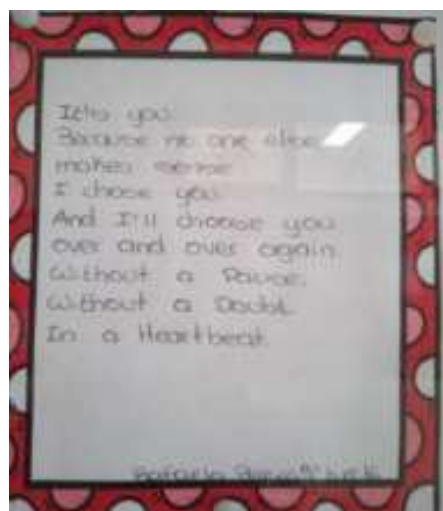 It's you
Because no one else
makes sense
I chose you
And I'll choose you
over and over again.
Without a Pause.
Without a Doubt.
In a Heartbeat.